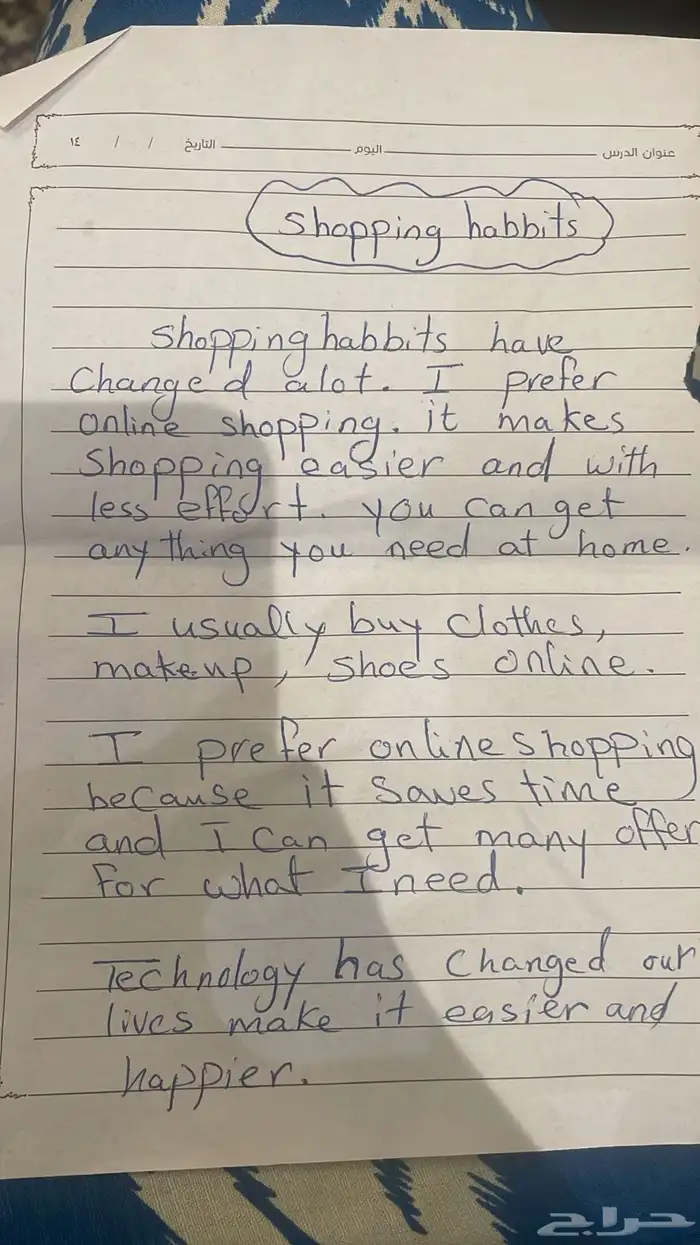 عنوان الدرس اليوم التاريخ / / ١٤
Shopping habbits
Shopping habbits have
Changed alot. I prefer
online shopping. it makes
Shopping easier and with
less effort. you can get
any thing you need at home.
I usually buy clothes,
makeup, shoes online.
I prefer online shopping
because it saves time
and I can get many offer
for what I need.
Technology has changed our
lives make it easier and
happier.
حراج